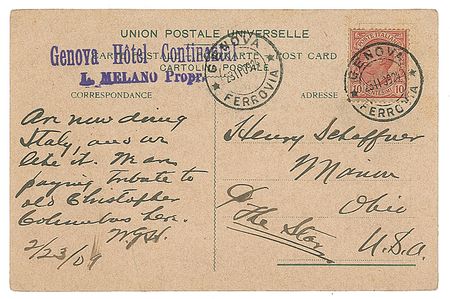 UNION POSTALE UNIVERSELLE
CARTE POSTALE POST CARD
CARTOLINA POSTALE
Genova Hôtel Continental
L. MELANO Propr.
CORRESPONDANCE
ADRESSE
GENOVA
FERROVIA
GENOVA
FERROVIA
POSTE ITALIANE
10 10
Are now doing
Italy, and we
like it. Am
paying tribute to
old Christopher
Columbus here.
WGH.
2/23/09
Henry Schaffner
Marion
Ohio
U.S.A.
"The Star"